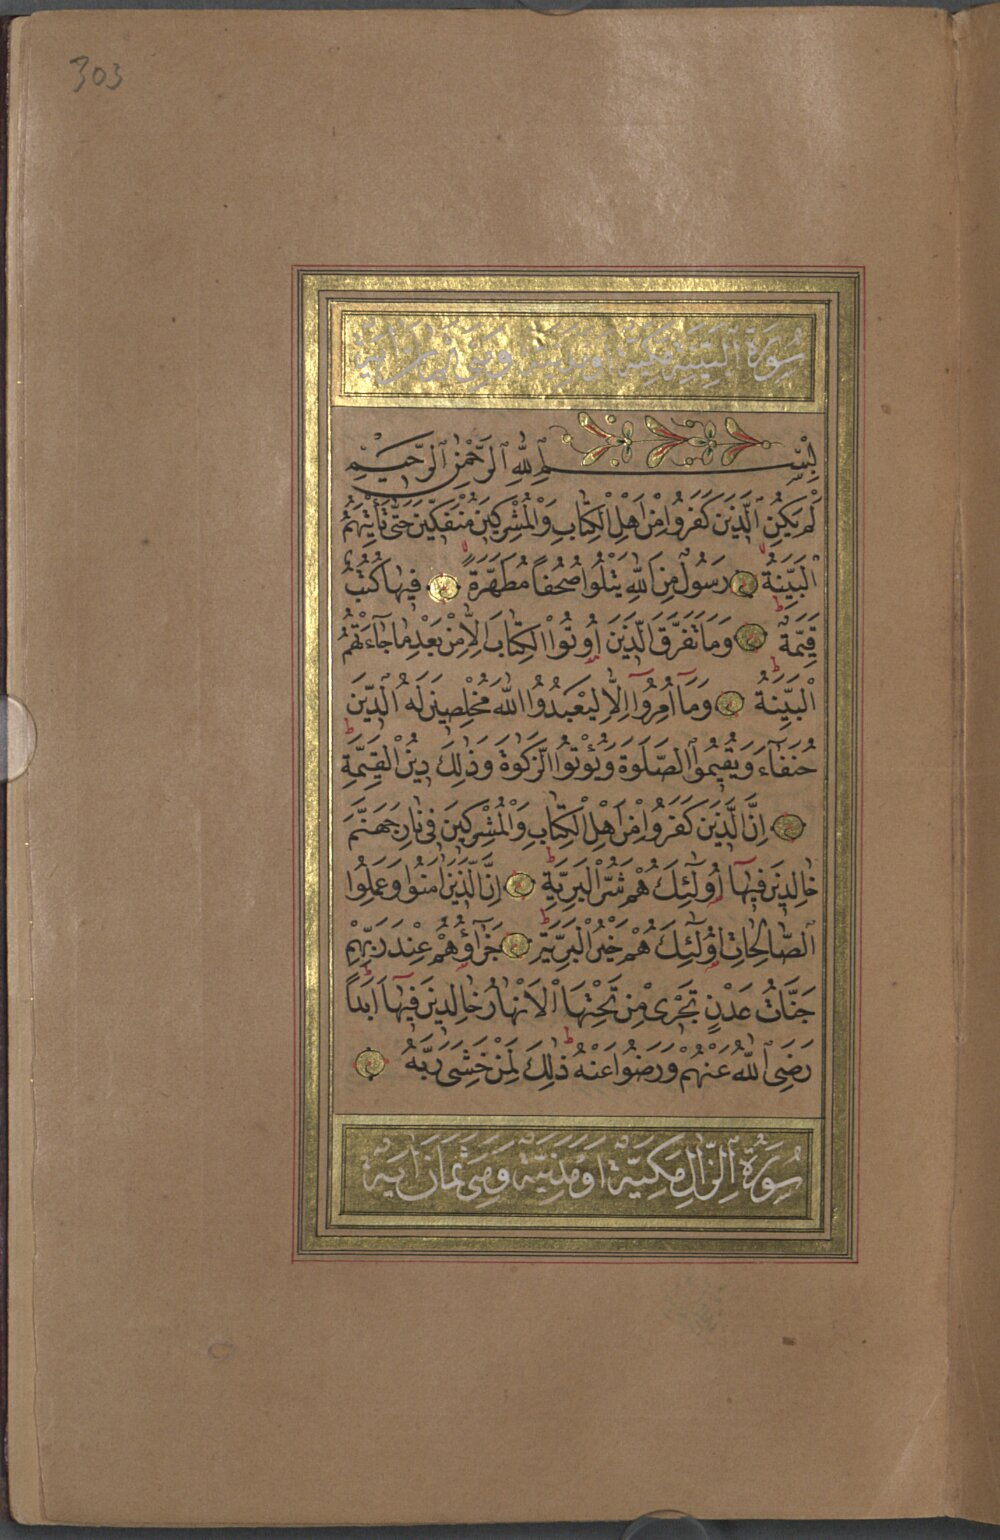 303
سُورَةُ الْبَيِّنَةِ مَكِيَّة اومدنية وَهِيَ ايَة
بِسْمِ اللهِ الرَّحْمٰنِ الرَّحيمِ
لَمْ يَكُنِ الَّذينَ كَفَرُوا مِنْ اَهْلِ الْكِتَابِ وَالْمُشْرِكينَ مُنْفَكّينَ حَتّٰى تَأْتِيَهُمُ
الْبَيِّنَةُ رَسُولٌ مِنَ اللهِ يَتْلُوا صُحُفًا مُطَهَّرَةً فيهَا كُتُبٌ
قَيِّمَةٌ وَمَا تَفَرَّقَ الَّذينَ اُوتُوا الْكِتَابَ اِلَّا مِنْ بَعْدِ مَا جَآءَتْهُمُ
الْبَيِّنَةُ وَمَآ اُمِرُوٓا اِلَّا لِيَعْبُدُوا اللهَ مُخْلِصينَ لَهُ الدّينَ
حُنَفَآءَ وَيُقيمُوا الصَّلٰوةَ وَيُؤْتُوا الزَّكٰوةَ وَذٰلِكَ دينُ الْقَيِّمَةِ
اِنَّ الَّذينَ كَفَرُوا مِنْ اَهْلِ الْكِتَابِ وَالْمُشْرِكينَ فى نَارِ جَهَنَّمَ
خَالِدينَ فيهَآ اُولٰٓئِكَ هُمْ شَرُّ الْبَرِيَّةِ اِنَّ الَّذينَ اٰمَنُوا وَعَمِلُوا
الصَّالِحَاتِ اُولٰٓئِكَ هُمْ خَيْرُ الْبَرِيَّةِ جَزَآؤُهُمْ عِنْدَ رَبِّهِمْ
جَنَّاتُ عَدْنٍ تَجْرى مِنْ تَحْتِهَا الْاَنْهَارُ خَالِدينَ فيهَآ اَبَدًا
رَضِىَ اللهُ عَنْهُمْ وَرَضُوا عَنْهُ ذٰلِكَ لِمَنْ خَشِىَ رَبَّهُ
سُورَةُ الزِّلْزَالِ مَكِيَّة اَوْ مَدَنِيَّة وَهِيَ ثَمَانَ ايَة